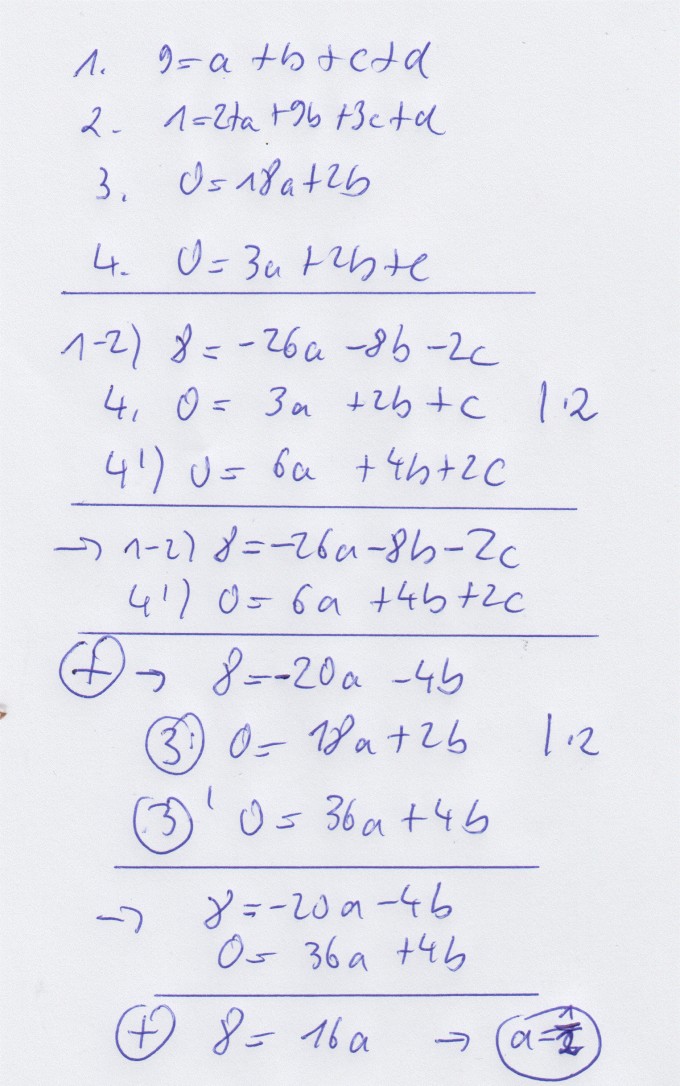 1. 9=a+b+c+d
2. 1=27a+9b+3c+d
3. 0=18a+2b
4. 0=3a+2b+c
1-2) 8=-26a-8b-2c
4. 0=3a+2b+c |·2
4') 0=6a+4b+2c
→ 1-2) 8=-26a-8b-2c
4') 0=6a+4b+2c
+ → 8=-20a-4b
3. 0=18a+2b |·2
3' 0=36a+4b
→ 8=-20a-4b
0=36a+4b
+ 8=16a → a=1/2